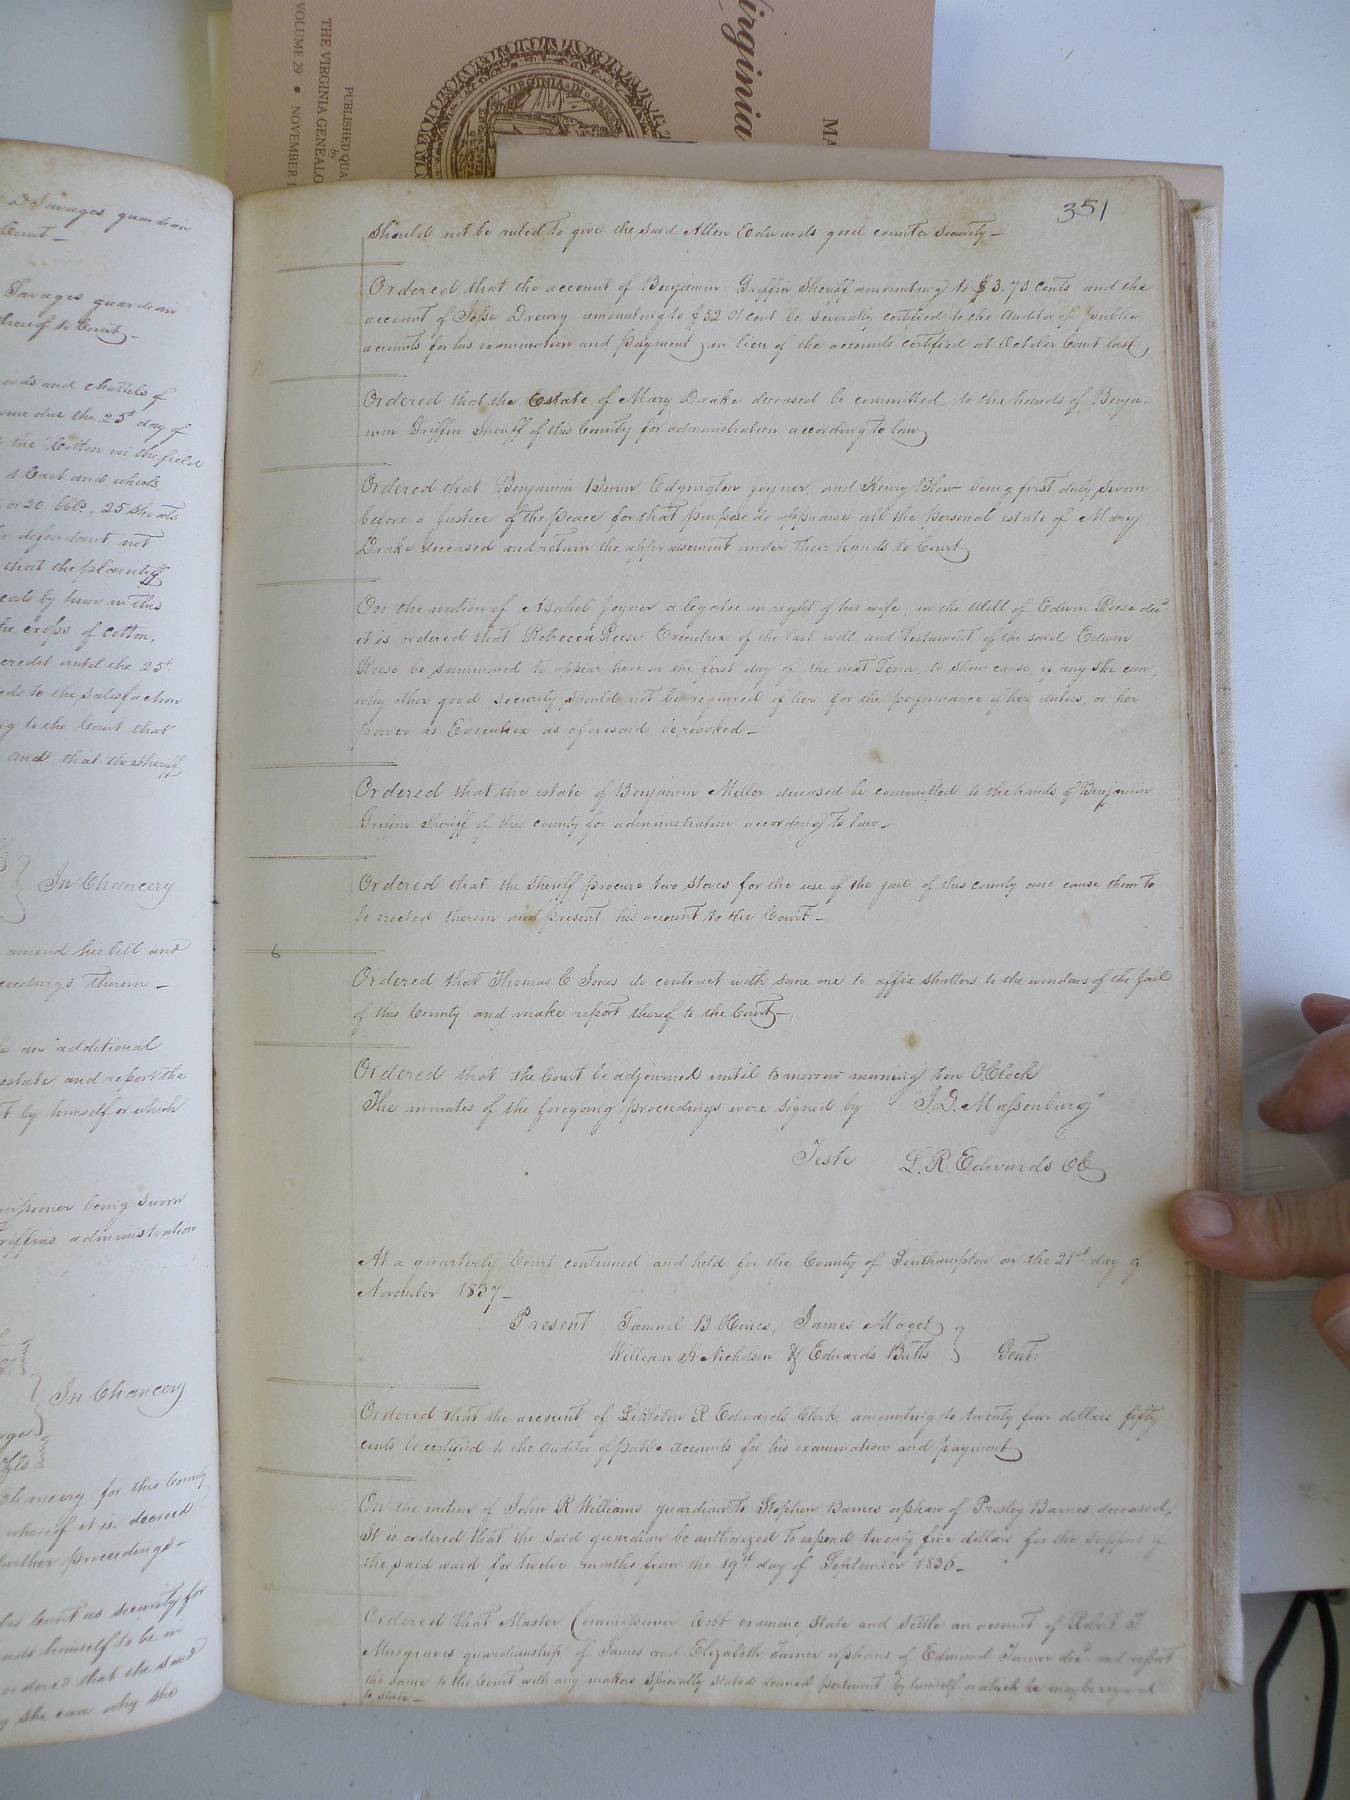 Virginia
MA
PUBLISHED QUA
by
THE VIRGINIA GENEALO
VOLUME 29 • NOVEMBER 1
VIRGINIA
D Savages guardian
Court —
Savages guardian
thereof to Court
goods and chattels of
same due the 25th day of
the Cotton in the field
1 Cart and wheels
or 20 bbls, 25 shoats
defendant not
that the plaintiff
by him in this
the crops of cotton,
credit until the 25th
to the satisfaction
to the Court that
and that the sheriff
In Chancery
amend his bill and
proceedings therein —
an additional
estate and report the
by himself or which
Commissioner being sworn
Griffins administration
In Chancery
Chancery for this County
whereof it is decreed
further proceedings —
this Court as security for
himself to be in
ordered that the said
she can why she
351
should not be ruled to give the said Allen Edwards good counter security —
Ordered that the account of Benjamin Griffin Sheriff amounting to $3.73 cents and the
account of Jesse Drewry amounting to $52 01 cent be severally certified to the Auditor of public
accounts for his examination and payment in lieu of the accounts certified at October Court last,
Ordered that the Estate of Mary Drake deceased be committed to the hands of Benja-
min Griffin Sheriff of this County for administration according to law
Ordered that Benjamin Bunn Edgington Joyner, and Henry Blow being first duly sworn
before a Justice of the peace for that purpose do appraise all the personal estate of Mary
Drake deceased and return the appraisement under their hands to Court
On the motion of Asahel Joyner a legatee in right of his wife, in the Will of Edwin Reese decd
it is ordered that Rebecca Reese Executrix of the last will and testament of the said Edwin
Reese be summoned to appear here on the first day of the next Term, to show cause if any she can,
why other good security, should not be required of her for the performance of her duties, or her
power as Executrix as aforesaid be revoked —
Ordered that the estate of Benjamin Miller deceased be committed to the hands of Benjamin
Griffin Sheriff of this county for administration according to law —
Ordered that the sheriff procure two stoves for the use of the jail of this county and cause them to
be erected therein and present his account to the Court —
6
Ordered that Thomas C Jones do contract with some one to affix shutters to the windows of the Jail
of this County and make report thereof to the Court —
Ordered that the Court be adjourned until tomorrow morning ten OClock
The minutes of the foregoing proceedings were signed by J. D. Massenburg
Teste L. R. Edwards CC
At a quarterly Court continued and held for the County of Southampton on the 21st day of
November 1837 —
Present Samuel B Hines, James Maget
William H Nicholson & Edwards Butts } Gent:
Ordered that the account of Littleton R Edwards Clerk, amounting to twenty four dollars fifty
cents be certified to the auditor of public accounts for his examination and payment
On the motion of John R Williams guardian to Stephen Barnes orphan of Presley Barnes deceased,
It is ordered that the said guardian be authorized to expend twenty five dollars for the support of
the said ward for twelve months from the 19th day of September 1836 —
Ordered that Master Commissioner Cobb examine state and settle an account of Robert T
Musgraves guardianship of James and Elizabeth Turner orphans of Edmund Turner decd and report
the same to the Court with any matters specially stated deemed pertinent by himself or which he may be required
to state —